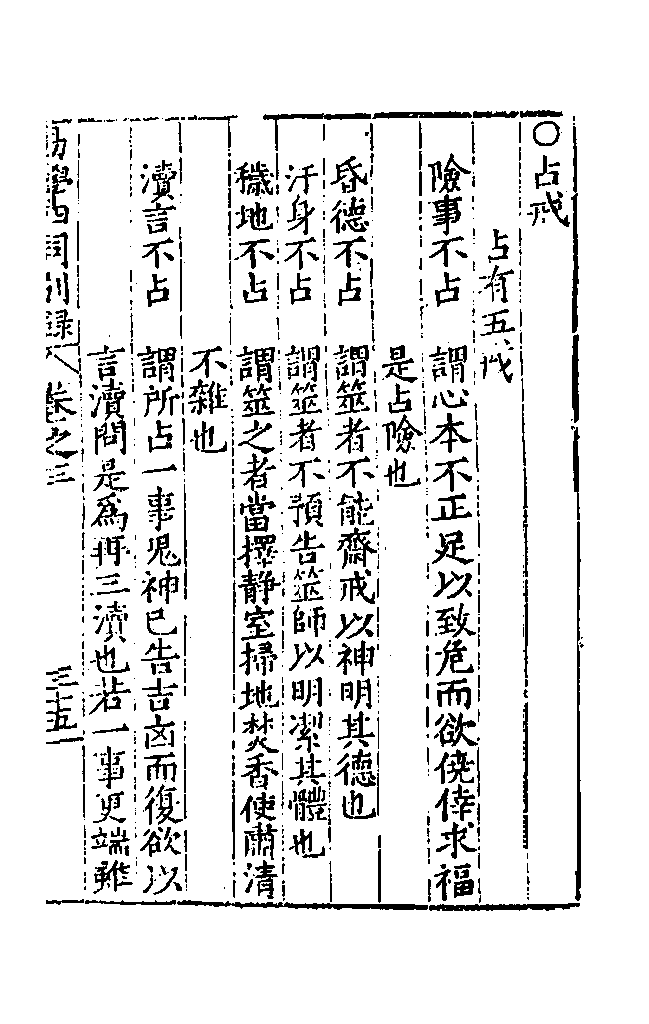 ○占戒
占有五戒
險事不占　謂心本不正足以致危而欲僥倖求福
是占險也
昏德不占　謂筮者不能齋戒以神明其德也
汙身不占　謂筮者不預告筮師以明潔其體也
穢地不占　謂筮之者當擇静室掃地焚香使肅清
不雜也
瀆言不占　謂所占一事鬼神已告吉㐫而復欲以
言瀆問是爲再三瀆也若一事更端雖
易學四同别録　卷之三　三十五